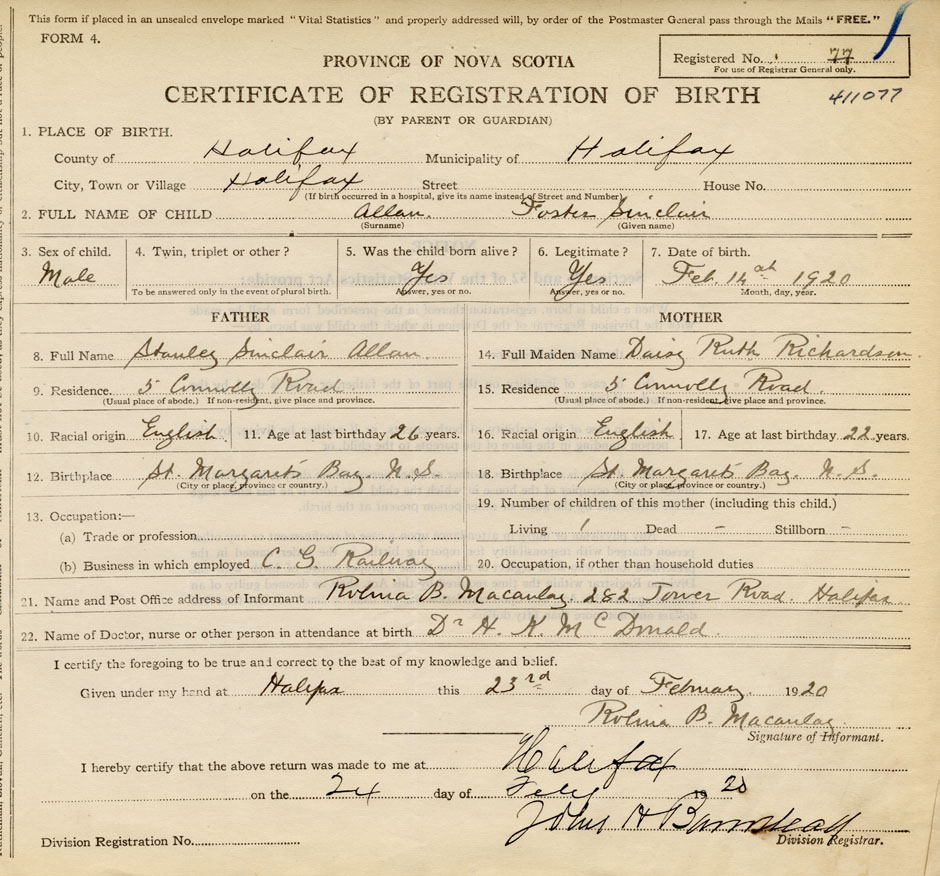 This form if placed in an unsealed envelope marked "Vital Statistics" and properly addressed will, by order of the Postmaster General pass through the Mails "FREE."
FORM 4.
Registered No. 77
For use of Registrar General only.
PROVINCE OF NOVA SCOTIA
CERTIFICATE OF REGISTRATION OF BIRTH
411077
(BY PARENT OR GUARDIAN)
1. PLACE OF BIRTH.
County of Halifax Municipality of Halifax
City, Town or Village Halifax Street House No.
(If birth occurred in a hospital, give its name instead of Street and Number)
2. FULL NAME OF CHILD Allan. Foster Sinclair
(Surname) (Given name)
3. Sex of child. 4. Twin, triplet or other? 5. Was the child born alive? 6. Legitimate? 7. Date of birth.
Male Yes Yes Feb. 14th 1920
To be answered only in the event of plural birth. Answer, yes or no. Answer, yes or no. Month, day, year.
FATHER MOTHER
8. Full Name Stanley Sinclair Allan. 14. Full Maiden Name Daisy Ruth Richardson.
9. Residence 5 Connolly Road 15. Residence 5 Connolly Road.
(Usual place of abode.) If non-resident, give place and province. (Usual place of abode.) If non-resident, give place and province.
10. Racial origin English 11. Age at last birthday 26 years. 16. Racial origin English 17. Age at last birthday 22 years.
12. Birthplace St. Margaret's Bay. N. S. 18. Birthplace St. Margaret's Bay. N. S.
(City or place, province or country.) (City or place, province or country.)
19. Number of children of this mother (including this child.)
13. Occupation:—
Living 1 Dead – Stillborn –
(a) Trade or profession
(b) Business in which employed C. G. Railway 20. Occupation, if other than household duties
21. Name and Post Office address of Informant Rolina B. Macaulay. 282 Tower Road. Halifax
22. Name of Doctor, nurse or other person in attendance at birth Dr H. K. McDonald.
I certify the foregoing to be true and correct to the best of my knowledge and belief.
Given under my hand at Halifax this 23rd day of February 1920
Rolina B. Macaulay.
Signature of Informant.
I hereby certify that the above return was made to me at Halifax
on the 24 day of Feby 1920
John H Barnstead
Division Registration No. Division Registrar.